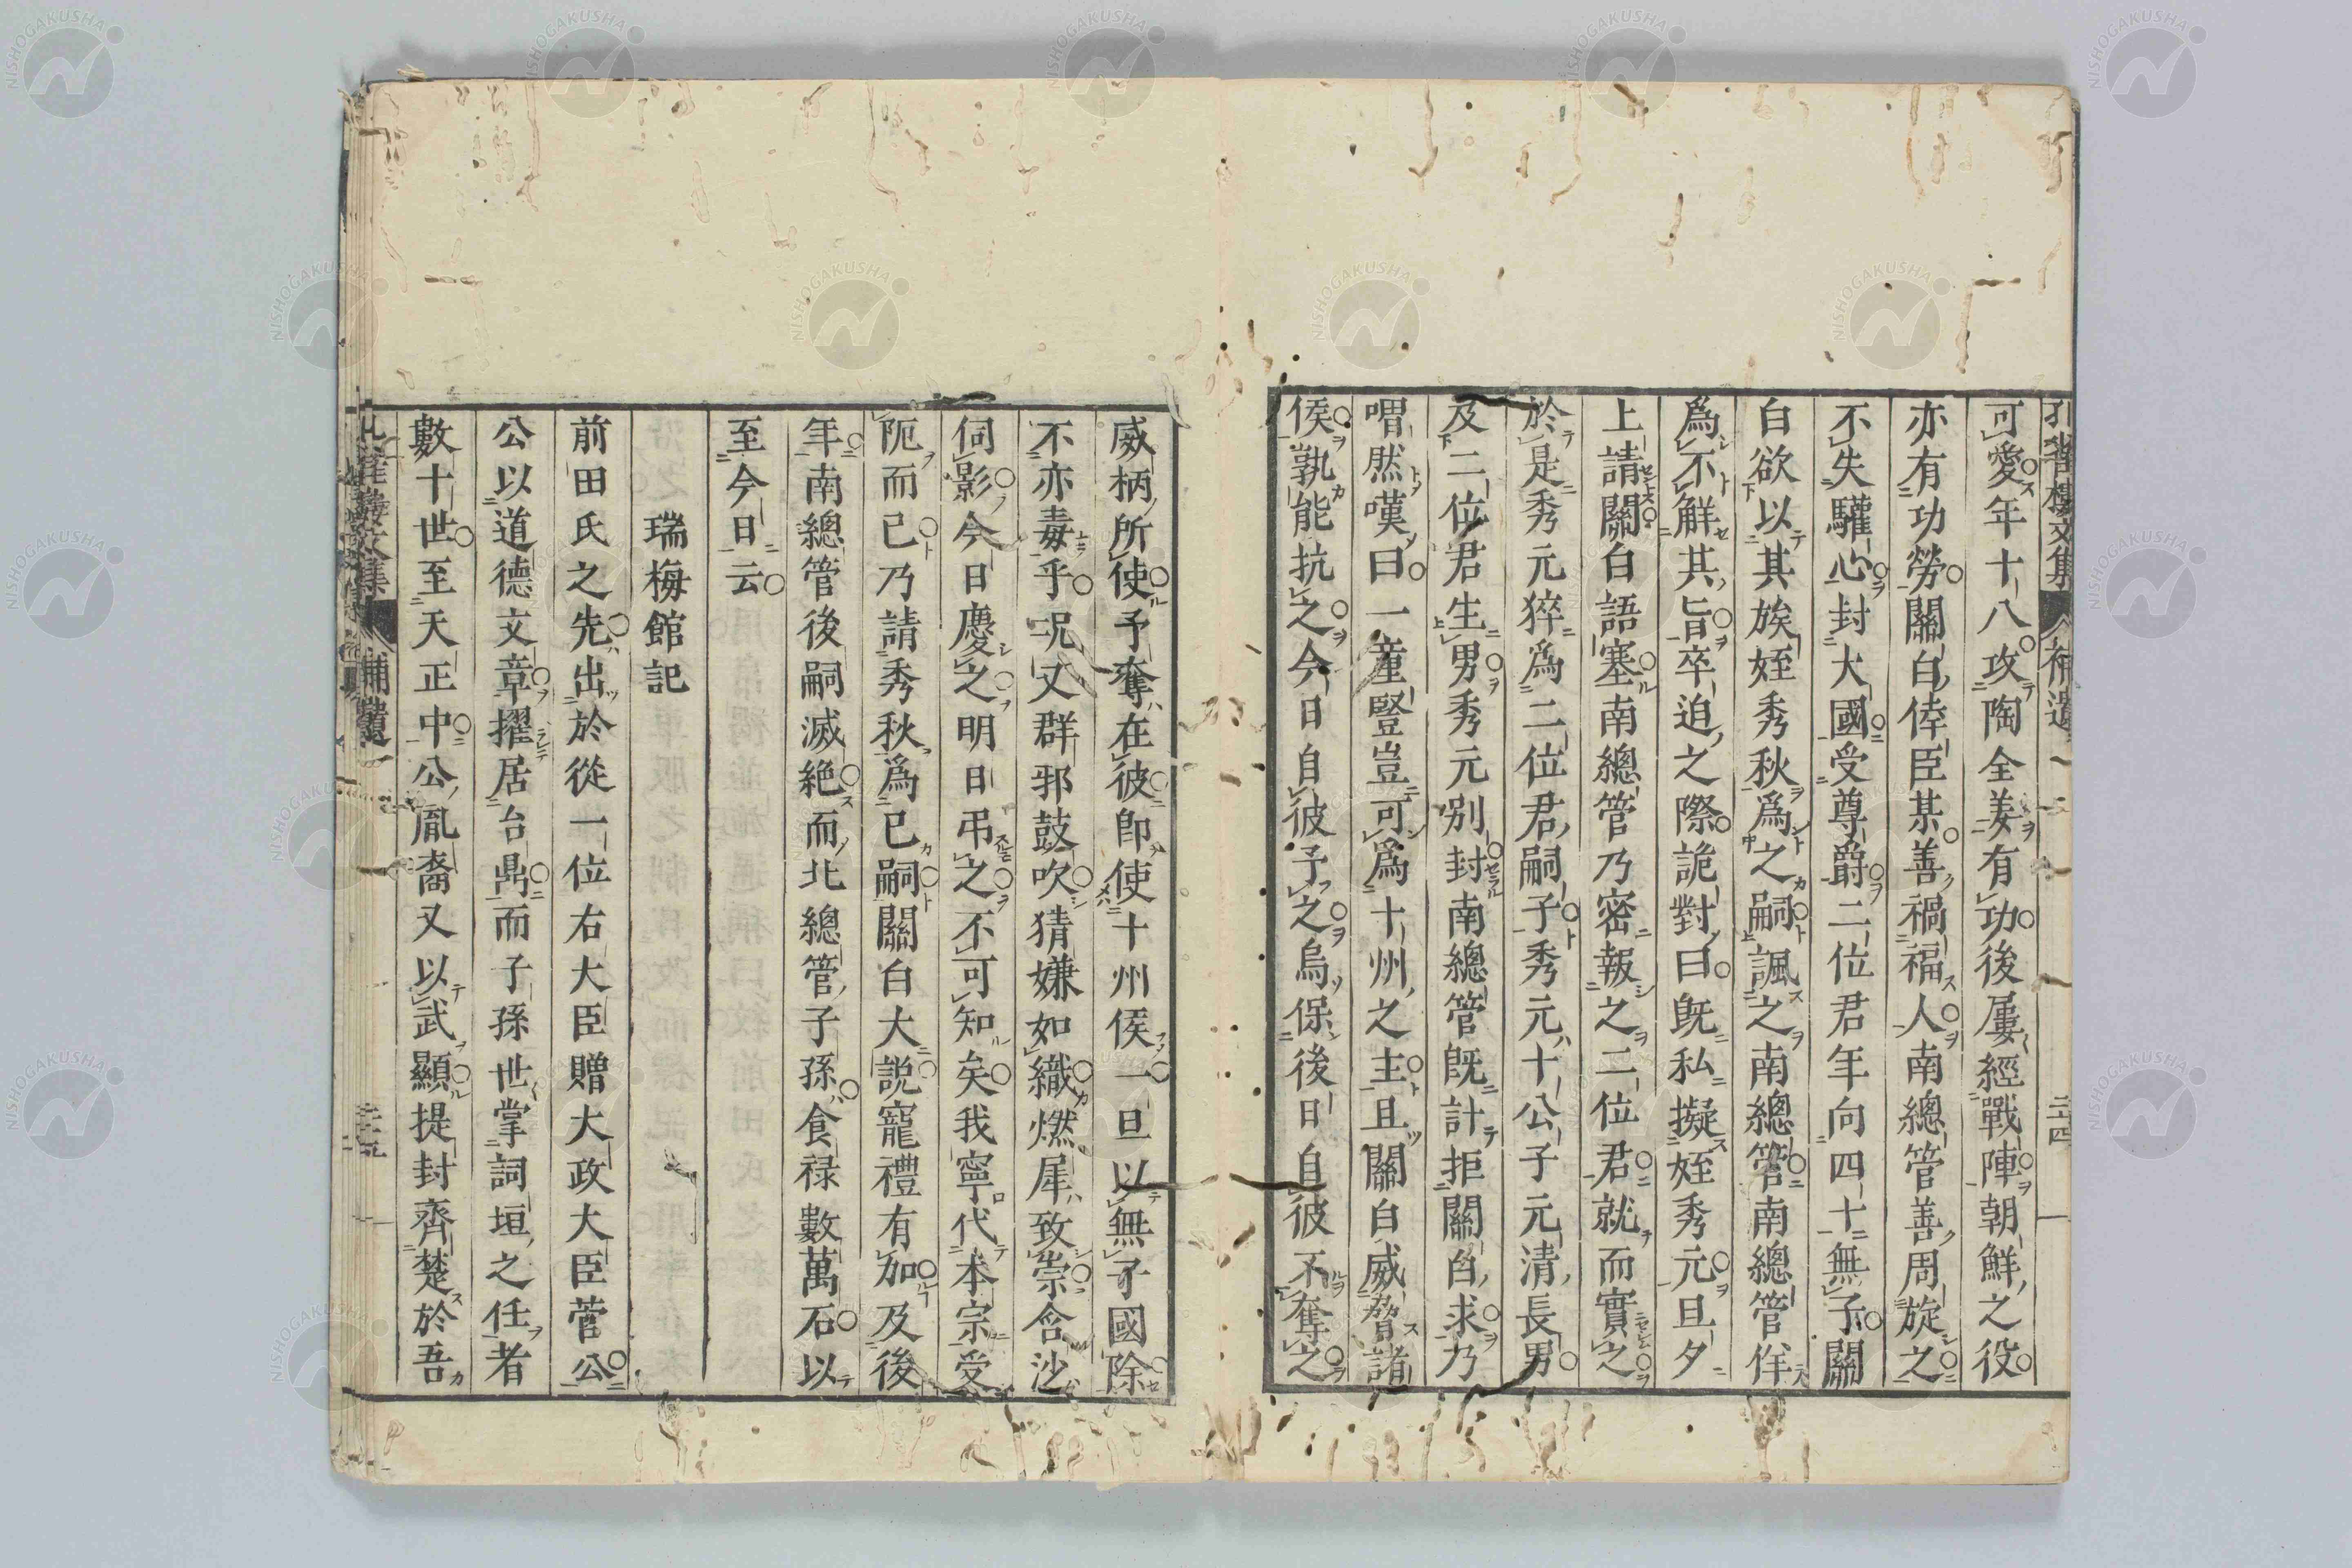 可愛年十八攻陶全羗有功後屢經戰陣朝鮮之役
亦有功勞關白倖臣某善禍福人南總管善周旋之
不失驩心封大國受尊爵二位君年向四十無子關
白欲以其族姪秀秋爲之嗣諷之南總管南總管佯
爲不解其旨卒迫之際詭對曰既私擬姪秀元旦夕
上請關白語塞南總管乃密報之二位君就而實之
於是秀元猝爲二位君嗣子秀元十公子元清長男
及二位君生男秀元別封南總管既計拒關白求乃
喟然嘆曰一童豎豈可爲十州之主且關白威脅諸
侯孰能抗之今日自彼予之烏保後日自彼不奪之
威柄所使予奪在彼即使十州侯一旦以無子國除
不亦毒乎况又群邪鼓吹猜嫌如織燃犀致崇含沙
伺影今日慶之明日弔之不可知矣我寧代本宗受
阨而已乃請秀秋爲已嗣關白大説寵禮有加及後
年南總管後嗣滅絶而北總管子孫食禄數萬石以
至今日云
瑞梅館記
前田氏之先出於從一位右大臣贈大政大臣菅公
公以道德文章擢居台鼎而子孫世掌詞垣之任者
數十世至天正中公胤裔又以武顯提封齊楚於吾